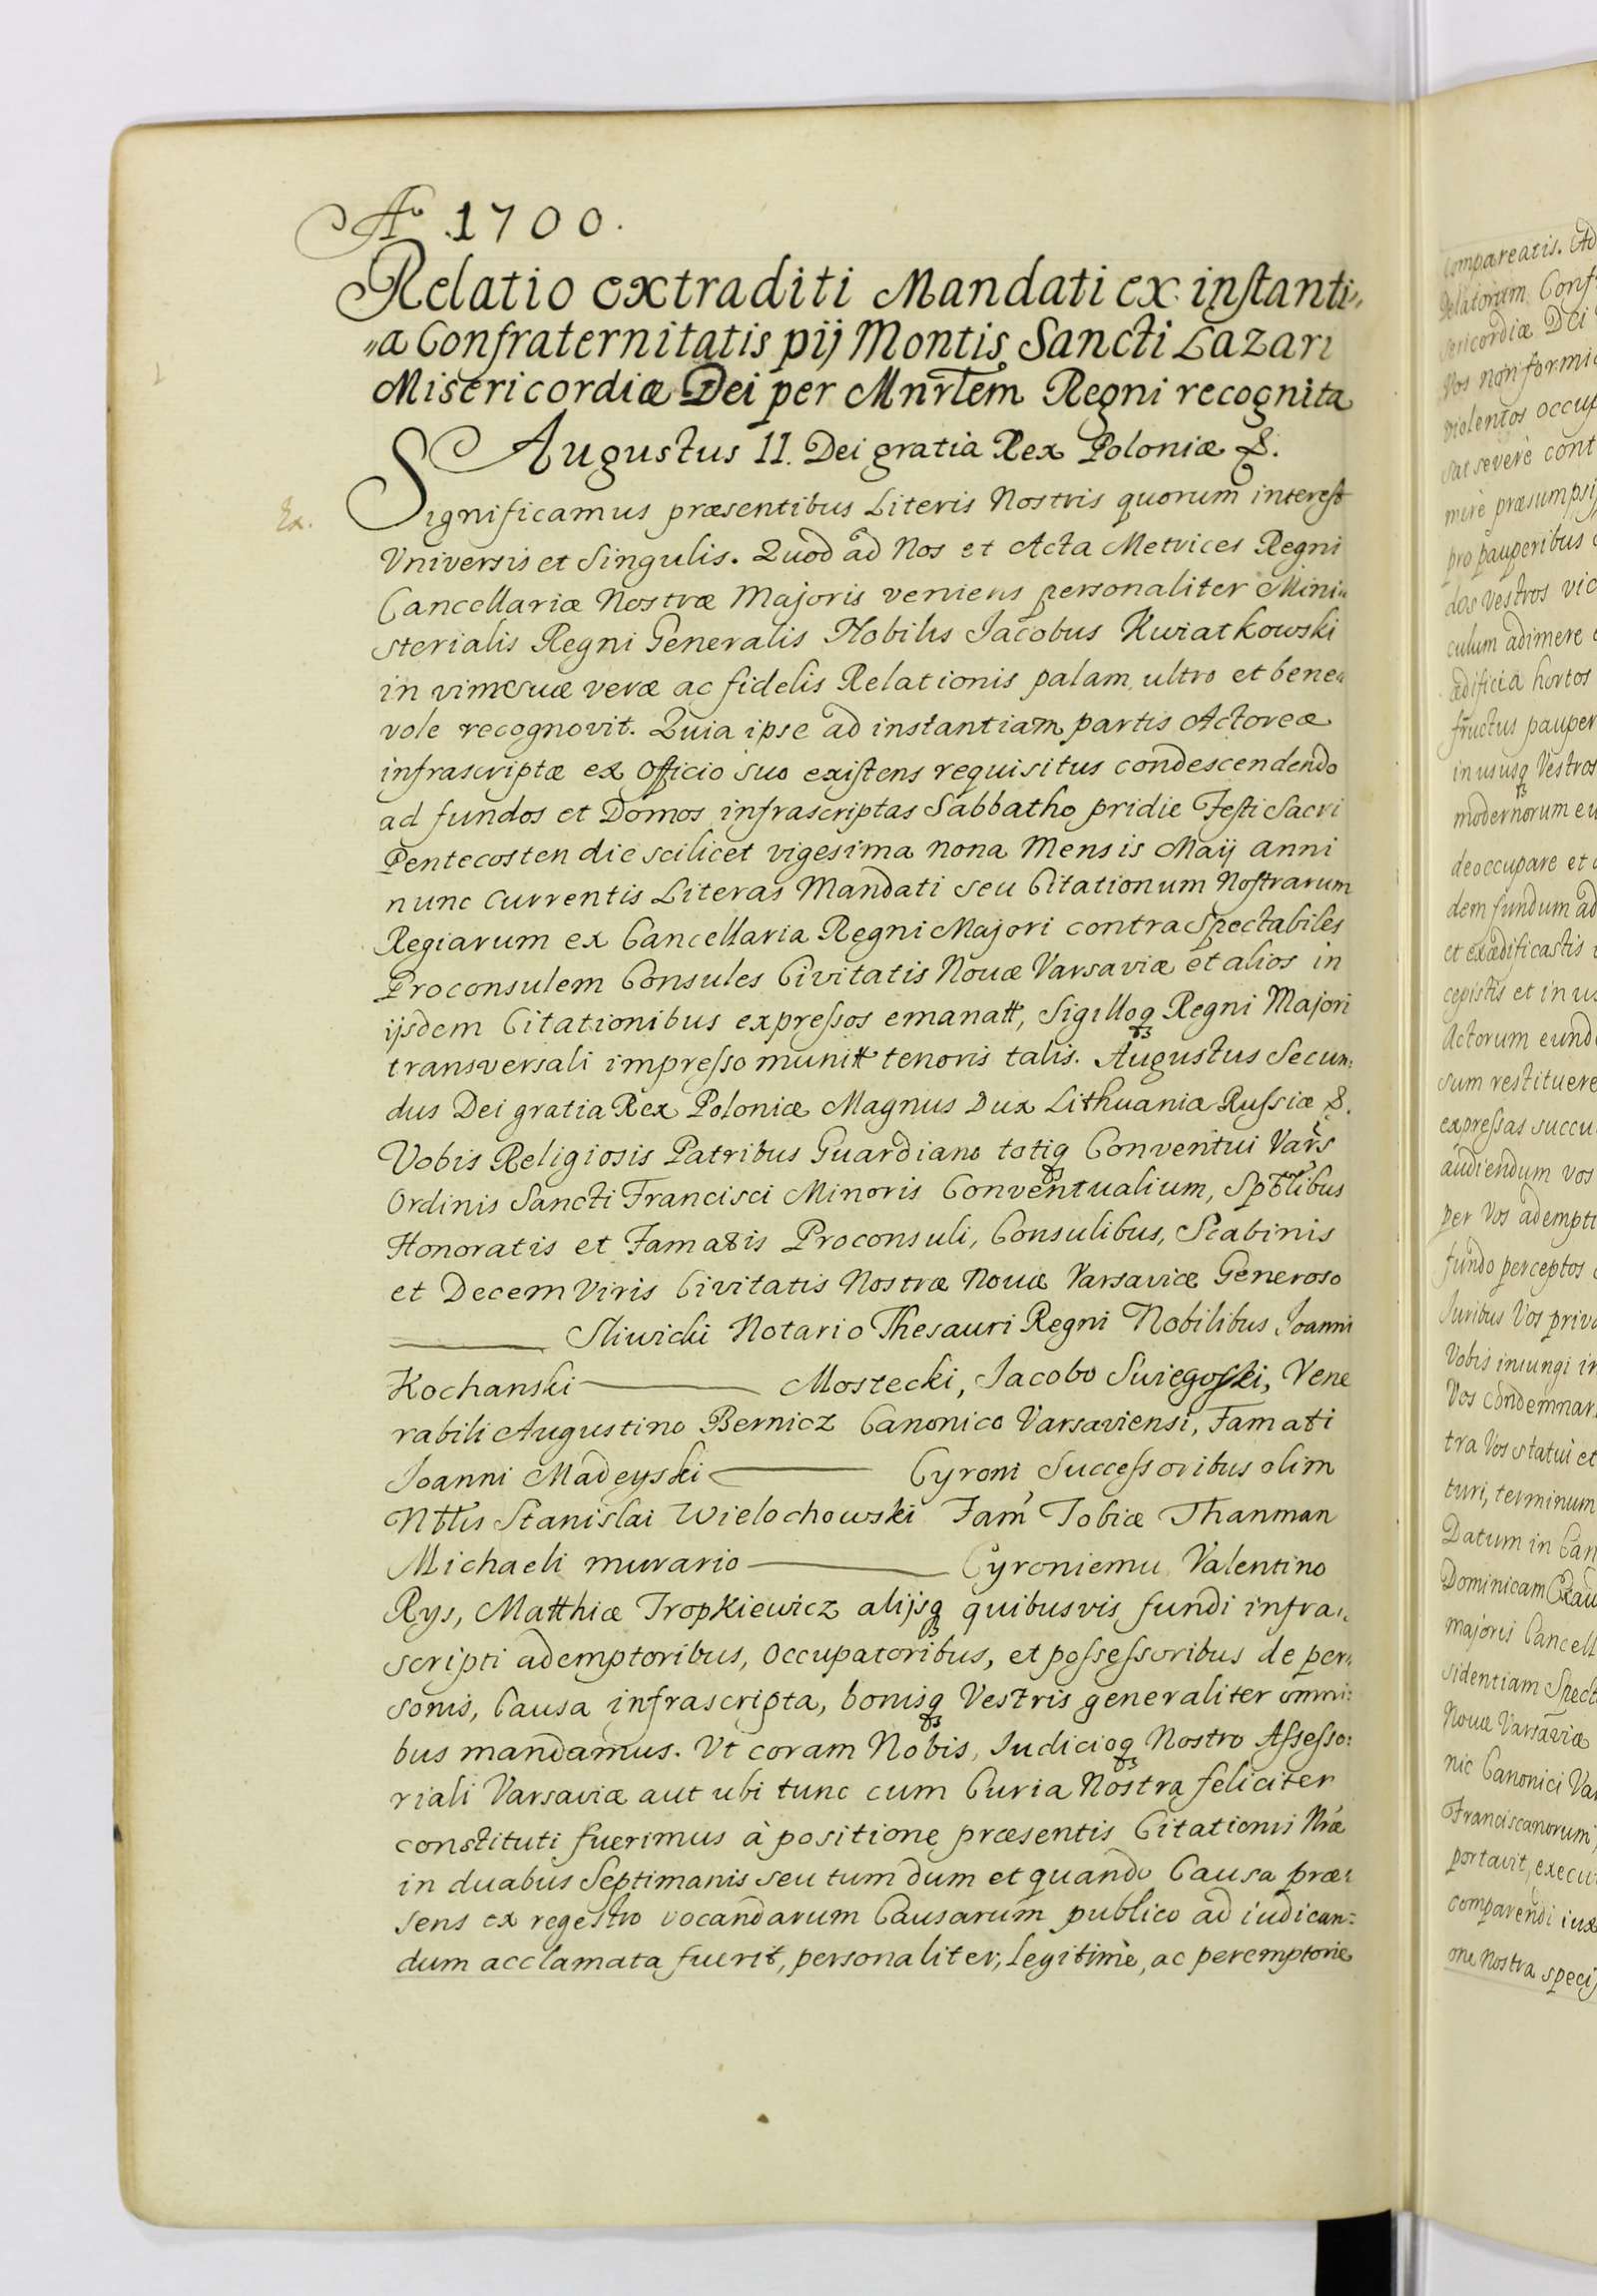 Aº 1700.
Relatio extraditi Mandati ex instanti„
„a Confraternitatis pij Montis Sancti Lazari
Misericordiæ Dei per Mnrlem Regni recognita
Augustus II. Dei gratia Rex Poloniæ &.
Ex.
Significamus præsentibus Literis Nostris quorum interest
Vniversis et Singulis. Quod ad Nos et Acta Metrices Regni
Cancellariæ Nostræ Majoris veniens personaliter Mini„
sterialis Regni Generalis Nobilis Jacobus Kwiatkowski
in vim suæ veræ ac fidelis Relationis palam ultro et bene„
vole recognovit. Quia ipse ad instantiam partis Actoreæ
infrascriptæ ex Officio suo existens requisitus condescendendo
ad fundos et Domos infrascriptas Sabbatho pridie Festi Sacri
Pentecosten die scilicet vigesima nona Mensis Maij anni
nunc currentis Literas Mandati seu Citationum Nostrarum
Regiarum ex Cancellaria Regni Majori contra Spectabiles
Proconsulem Consules Civitatis Nouæ Varsaviæ et alios in
ijsdem Citationibus expressos emanatt, Sigilloq Regni Majori
transversali impresso munitt tenoris talis. Augustus Secun:
dus Dei gratia Rex Poloniæ Magnus Dux Lithuaniæ Russiæ &.
Vobis Religiosis Patribus Guardiano totiq Conventui Vars
Ordinis Sancti Francisci Minoris Conventualium, Spblibus
Honoratis et Famatis Proconsuli, Consulibus, Scabinis
et Decem Viris Civitatis Nostræ Nouæ Varsaviæ Generoso
——— Sliwicki Notario Thesauri Regni Nobilibus Joanni
Kochanski ——— Mostecki, Jacobo Swiegoski, Vene
rabili Augustino Bernicz Canonico Varsaviensi, Famati
Joanni Madeyski ——— Cyroni Successoribus olim
Nblis Stanislai Wielochowski Fam Tobiæ Thanman
Michaeli murario ——— Cyroniemu Valentino
Rys, Matthiæ Tropkiewicz alijsq quibusvis fundi infra„
scripti ademptoribus, occupatoribus, et possessoribus de per„
sonis, Causa infrascripta, bonisq Vestris generaliter omni:
bus mandamus. Vt coram Nobis, Judicioq Nostro Assesso:
riali Varsaviæ aut ubi tunc cum Curia Nostra feliciter
constituti fuerimus à positione præsentis Citationis Nræ
in duabus Septimanis seu tum dum et quando Causa præ:
sens ex regestro vocandarum Causarum publico ad iudican:
dum acclamata fuerit, personaliter, legitimè, ac peremptorie
compareatis. Ad
Delatorum Conf
sericordiæ Dei
Vos non formi
violentos occup
sat severè cont
mirè præsumpsi
pro pauperibus
dos vestros vic
culum adimere
ædificia hortos
fructus pauper
in ususq Vestros
modernorum eu
deoccupare et
dem fundum ad
et exædificastis
cepistis et in us
Actorum eund
sum restituere
expressas succu
audiendum vos
per Vos adempti
fundo perceptos
Juribus Vos priva
Vobis iniungi in
Vos condemnar
tra Vos statui et
turi, terminum
Datum in Can
Dominicam Exau
majoris Cancell
sidentiam Spect
Nouæ Varsaviæ
nic Canonici Va
Franciscanorum
portavit, execu
comparendi iux
one Nostra speci